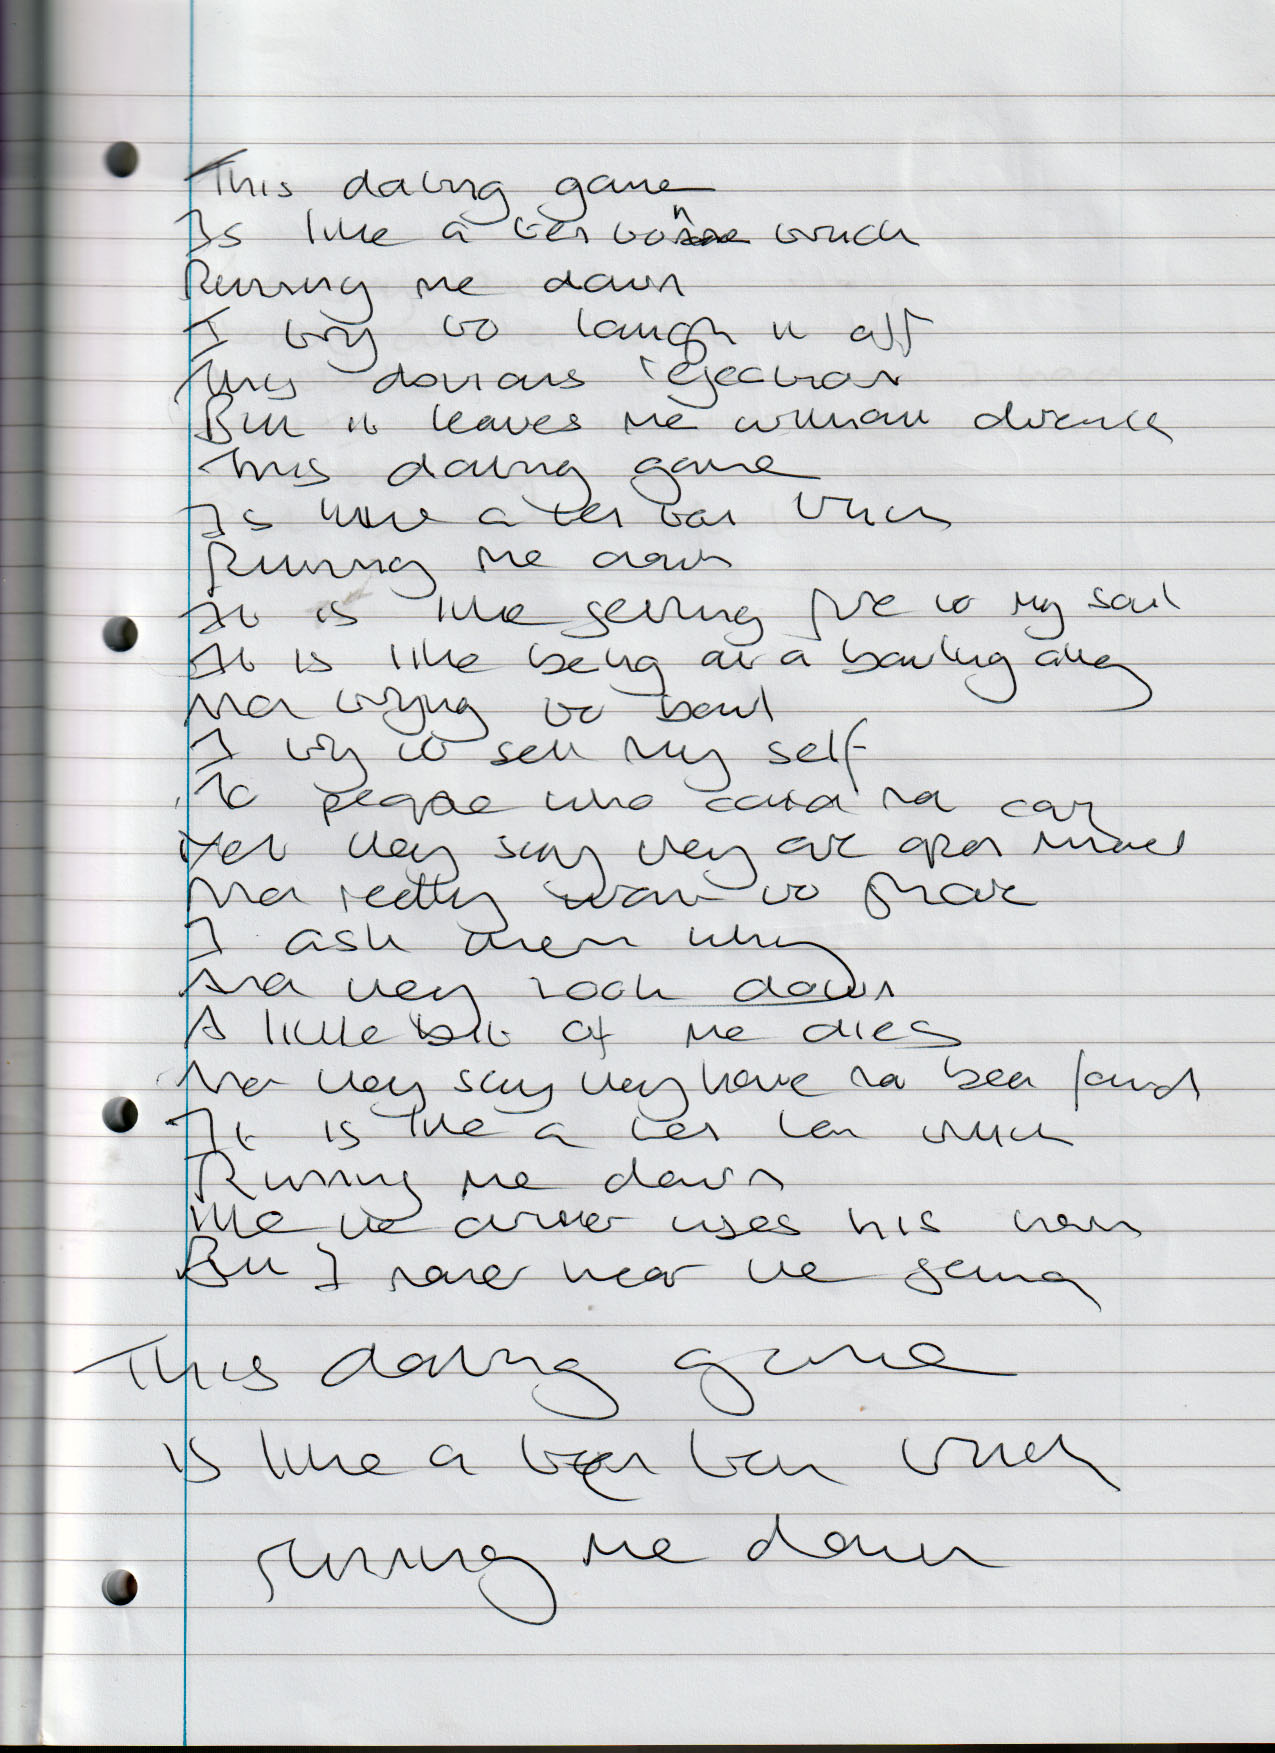 This dating game
Is like a ten ton truck
Running me down
I try to laugh it off
This obvious rejection
But it leaves me without
This dating game
Is like a ten ton truck
Running me down
It is like setting fire to my soul
It is like being at a bowling alley
Not trying to bowl
I try to sell my self
To people who could not car
Yet they say they are open mined
Not really want to
I ask them why
And they look down
A little bit of me dies
they say they have not been found
It is like a ten ton truck
Running me down
Like the driver uses his horn
But I never hear the
This dating game
is like a ten ton truck
running me down